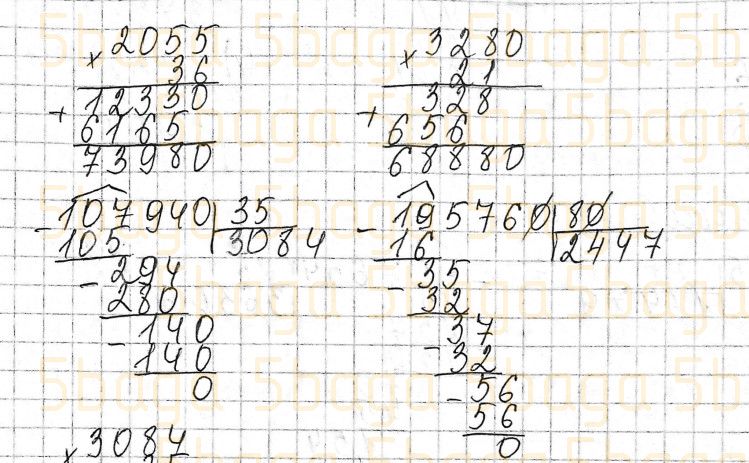 × 2055
36
+ 12330
6165
73980
× 3280
21
+ 328
656
68880
- 107940 | 35
105 3084
- 294
280
- 140
140
0
- 195760 | 80
16 2447
- 35
32
- 37
32
- 56
56
0
× 3084